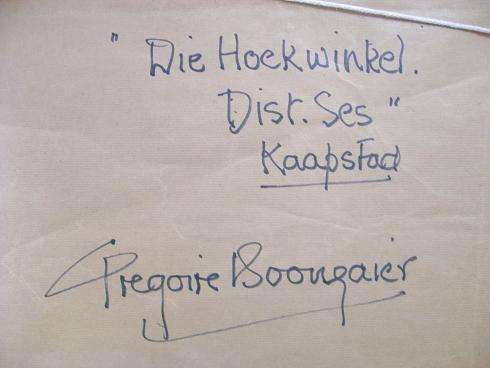 " Die Hoekwinkel.
Dist. Ses "
Kaapstad
Gregoire Boonzaier